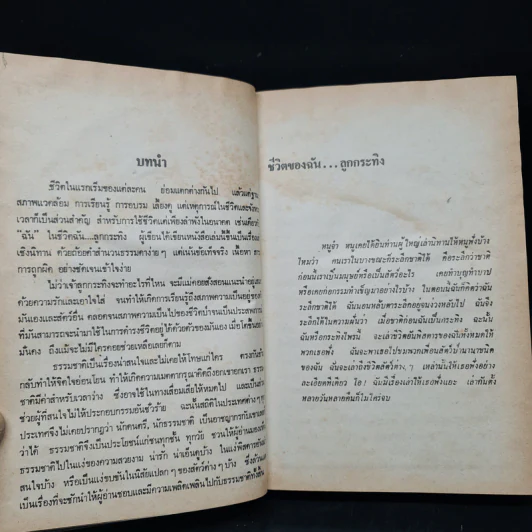 บทนำ
ชีวิตในแรกเริ่มของแต่ละคน ย่อมแตกต่างกันไป แล้วแต่ฐานะ
สภาพแวดล้อม การเรียนรู้ การอบรม เลี้ยงดู แต่เหตุการณ์ในชีวิตและ
เวลาก็เป็นส่วนสำคัญ สำหรับการใช้ชีวิตแต่เพียงลำพังในอนาคต เช่นเดียวกับ
"ฉัน" ในชีวิตฉัน...ลูกกระทิง ผู้เขียนได้เขียนหนังสือเล่มนี้ขึ้นเป็นเรื่อง
เชิงนิทาน ด้วยถ้อยคำสำนวนธรรมดาง่ายๆ แต่เน้นข้อเท็จจริง เนื้อหา
การถูกผิด อย่างชัดเจนเข้าใจง่าย
ไม่ว่าเจ้าลูกกระทิงจะทำอะไรที่ไหน จะมีแม่คอยสั่งสอนแนะนำอยู่
ด้วยความรักและเอาใจใส่ จนทำให้เกิดการเรียนรู้ถึงสภาพความเป็นอยู่ของ
มันเองและสัตว์อื่น ตลอดจนสภาพความเป็นไปของชีวิตป่าจนเป็นประสบการณ์
ที่มันสามารถจะนำมาใช้ในการดำรงชีวิตอยู่ได้ด้วยตัวของมันเอง เมื่อเติบใหญ่
มั่นคง ถึงแม้จะไม่มีใครคอยช่วยเหลือเลยก็ตาม
ธรรมชาติเป็นเรื่องน่าสนใจและไม่เคยให้โทษแก่ใคร ตรงกันข้าม
กลับทำให้จิตใจอ่อนโยน ทำให้เกิดความเมตตากรุณาคิดถึงอกเขาอกเรา
ชาติมีค่าสำหรับเวลาว่าง ซึ่งอาจใช้ในทางเสื่อมเสียให้หมดไป
ช่วยผู้ที่สนใจไม่ให้ประกอบกรรมอันชั่วร้าย ฉะนั้นสถิติในประเทศต่างๆ
ประเทศจึงไม่เคยปรากฏว่า นักดนตรี, นักธรรมชาติ เป็นอาชญากร
ว่าได้ ธรรมชาติจึงเป็นประโยชน์แก่ชนทุกชั้น ทุกวัย ชวนให้ผู้อ่าน
ธรรมชาติไปในแง่ของความสวยงาม น่ารัก น่าเอ็นดูบ้าง ในแง่
สนใจบ้าง หรือเป็นแง่ขบขันในนิสัยแปลกๆ ของสัตว์ต่างๆ บ้าง
เป็นเรื่องที่จะชักนำให้ผู้อ่านชอบและมีความเพลิดเพลินไปกับธรรมชาติ
ชีวิตของฉัน...ลูกกระทิง
หนูจ๋า หนูเคยได้ยินท่านผู้ใหญ่เล่านิทานให้หนูฟังบ้าง
ไหมว่า คนเราในบางขณะก็ระลึกชาติได้ คือระลึกว่าชาติ
ก่อนนี้เราเป็นมนุษย์หรือเป็นสัตว์อะไร เคยทำบุญทำบาป
หรือเคยก่อกรรมทำเข็ญมาอย่างไรบ้าง ในตอนนี้ฉันก็คิดว่าฉัน
ระลึกชาติได้ ฉันนอนหลับตาระลึกอยู่จนง่วงหลับไป ฉันจึง
ระลึกได้ในความฝันว่า เมื่อชาติก่อนฉันเป็นกระทิง ฉะนั้น
ฉันหรือกระทิงไพรนี้ จะเล่าชีวิตอันพิสดารของฉันทั้งหมดให้
พวกเธอฟัง ฉันจะพาเธอไปชมพวกเพื่อนสัตว์ป่านานาชนิด
ของฉัน ฉันจะเล่าถึงชีวิตสัตว์ต่าง, ๆ เหล่านั้นให้เธอฟังอย่าง
ละเอียดทีเดียว โอ! ฉันมีเรื่องเล่าให้เธอฟังเยอะ เล่าทั้งวัน
หลายวันหลายคืนก็ไม่ใคร่จบ